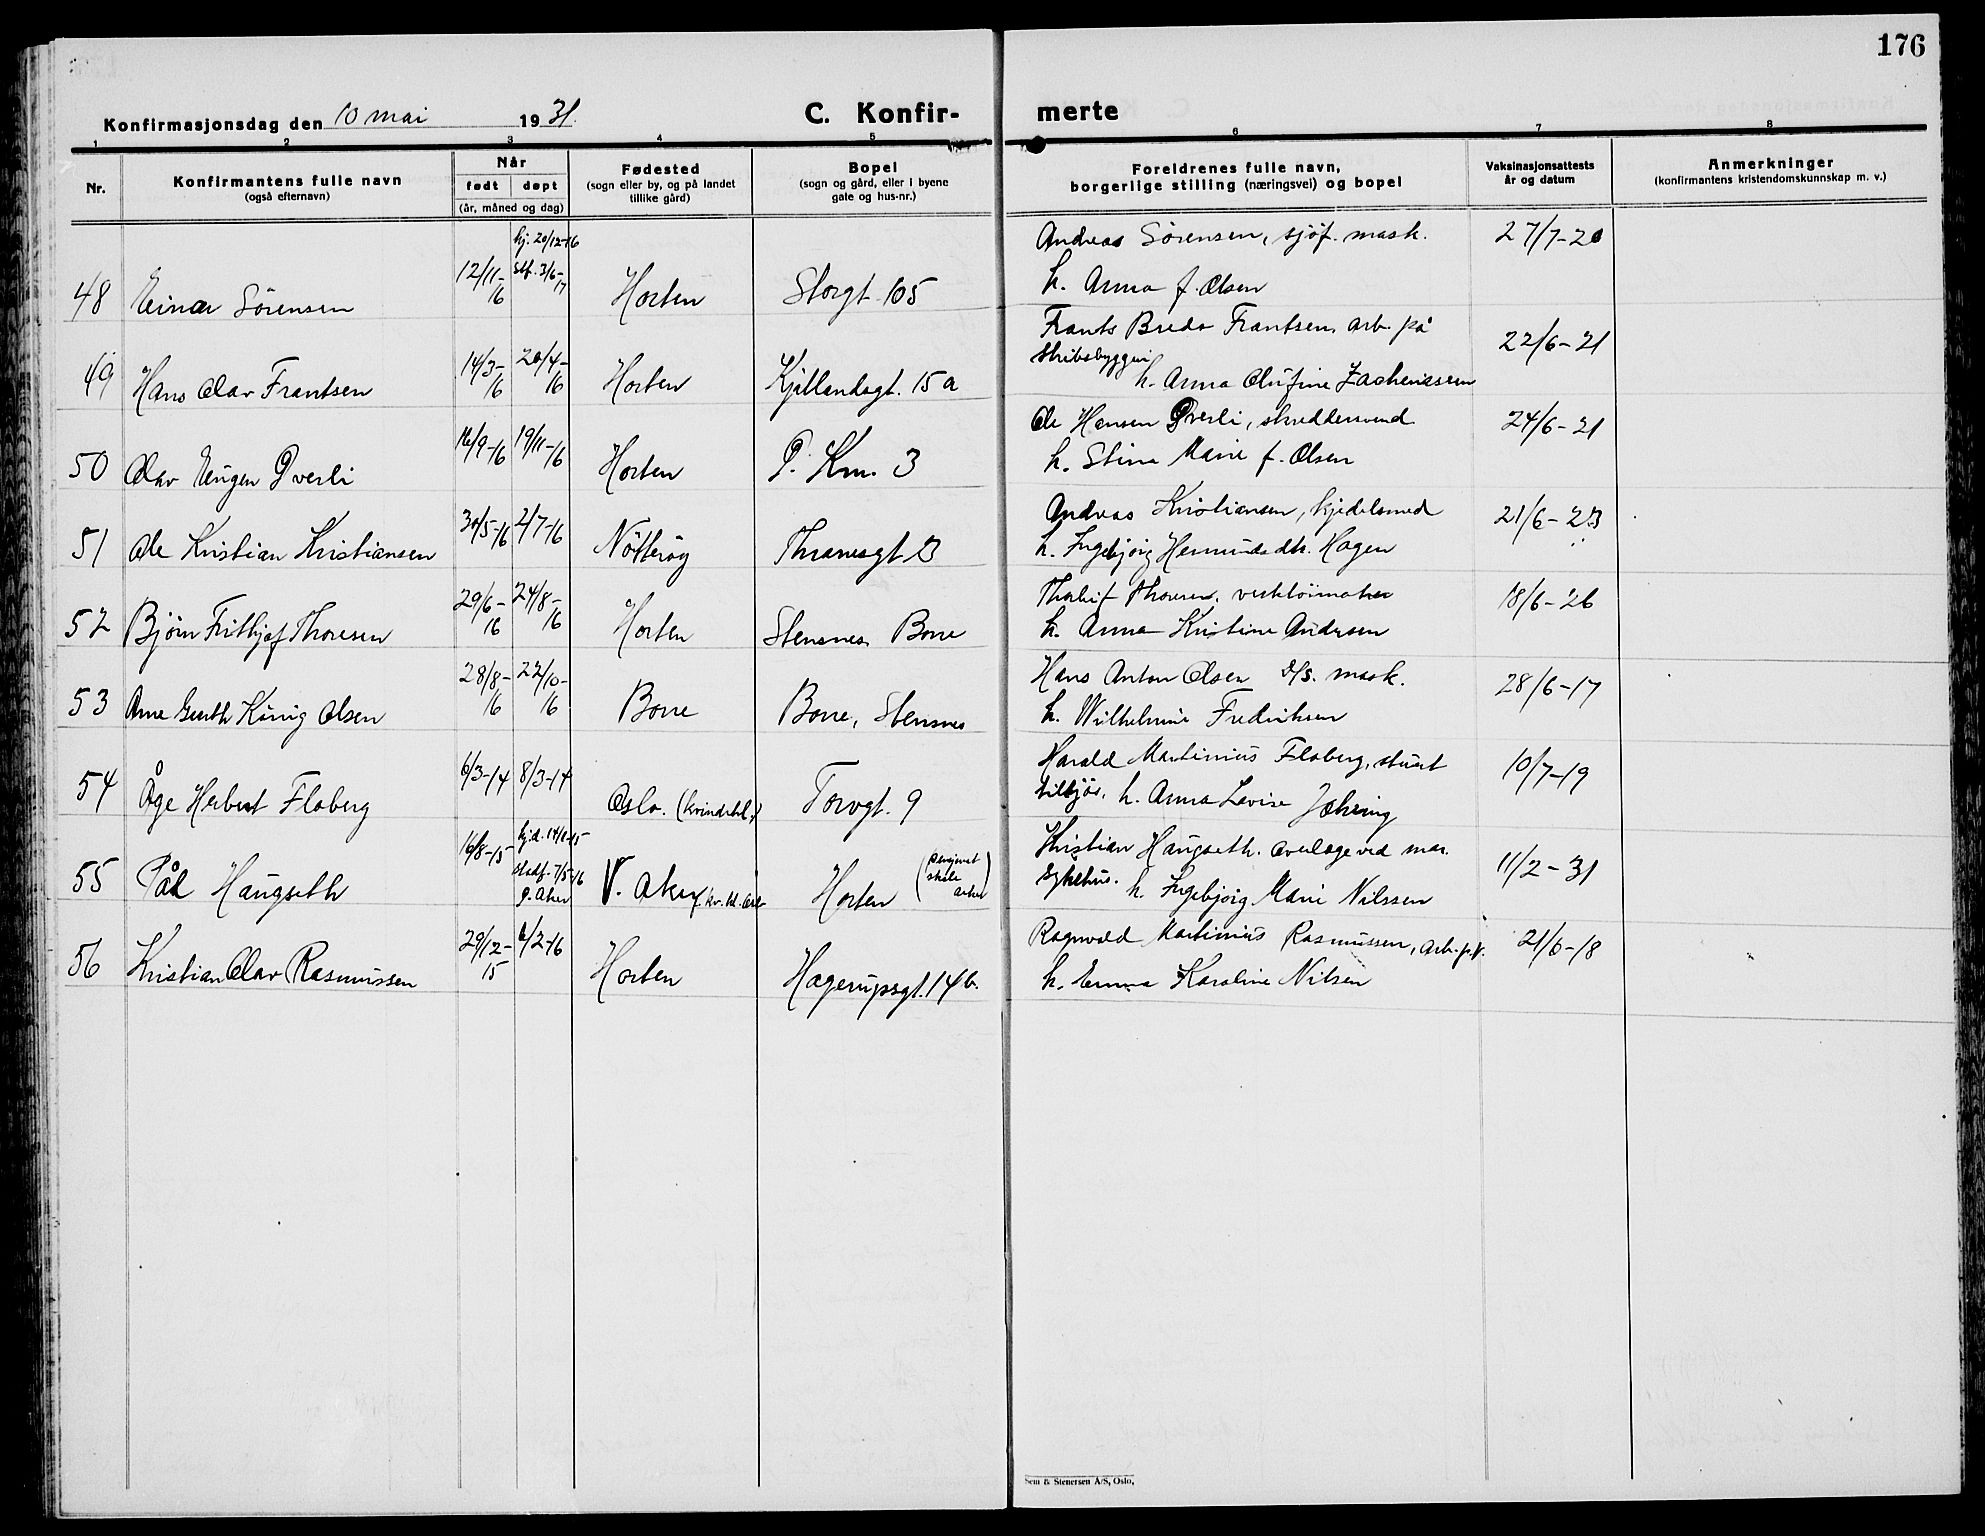 176
Konfirmasjonsdag den 10 mai 1931.
C. Konfir-
merte
1 2 3 4 5 6 7 8
Nr.
Konfirmantens fulle navn
(også efternavn)
Når
født døpt
(år, måned og dag)
Fødested
(sogn eller by, og på landet
tillike gård)
Bopel
(sogn og gård, eller i byene
gate og hus-nr.)
Foreldrenes fulle navn,
borgerlige stilling (næringsvei) og bopel
Vaksinasjonsattests
år og datum
Anmerkninger
(konfirmantens kristendomskunnskap m. v.)
hj. 20/12-16
Andreas Sörensen, sjöf. mask. 27/7-20
48 Einar Sörensen 12/11-16 stf. 3/6-17 Horten Storgt. 105
h. Anna f. Olsen
Frants Bredo Frantsen, arb. på 22/6-21
skibsbyggeri
49 Hans Olav Frantsen 14/3-16 20/4-16 Horten Kjellandsgt. 15a
h. Anna Olufine Zachariassen
Ole Hansen Dverli, skreddersvend 24/6-21
50 Olav Eugen Dverli 16/9-16 19/11-16 Horten P. Km. 3
h. Stina Marie f. Olsen
Andreas Kristiansen, kjedelsmed 21/6-23
51 Ole Kristian Kristiansen 30/5-16 2/7-16 Nötteröy Thranesgt.
h. Ingebjörg Hermunds dtr. Hagen
Thorleif Thoresen, verktöimaker 18/6-26
52 Björn Frithjof Thoresen 29/6-16 24/8-16 Horten Stensnes, Borre
h. Anna Kristine Andersen
Hans Anton Olsen d/s. mask. 28/6-17
53 Arne Gerth König Olsen 28/8-16 22/10-16 Borre Borre, Stensnes
h. Wilhelmine Fredriksen
Harald Martinius Floberg, stuert 10/7-19
54 Åge Herbert Floberg 6/3-14 8/3-14 Oslo. (kvindekl.) Torvgt. 9
tilsjös, h. Anna Lovise Jehring
hjd. 14/11-15
Kristian Haugseth. overlæge ved mar. 11/2-31
55 Pål Haugseth 16/8-15 stadf. 7/5-16 V. Aker kv. kl. Oslo Horten
p. Aker
sykehus. h. Ingebjörg Marie Nilssen
Ragnvald Martinius Rasmussen, arb. p. v. 21/6-18
56 Kristian Olav Rasmussen 29/12-15 6/2-16 Horten Hagerupsgt. 14b.
h. Emma Karoline Nilsen
Sem & Stenersen A/S, Oslo.